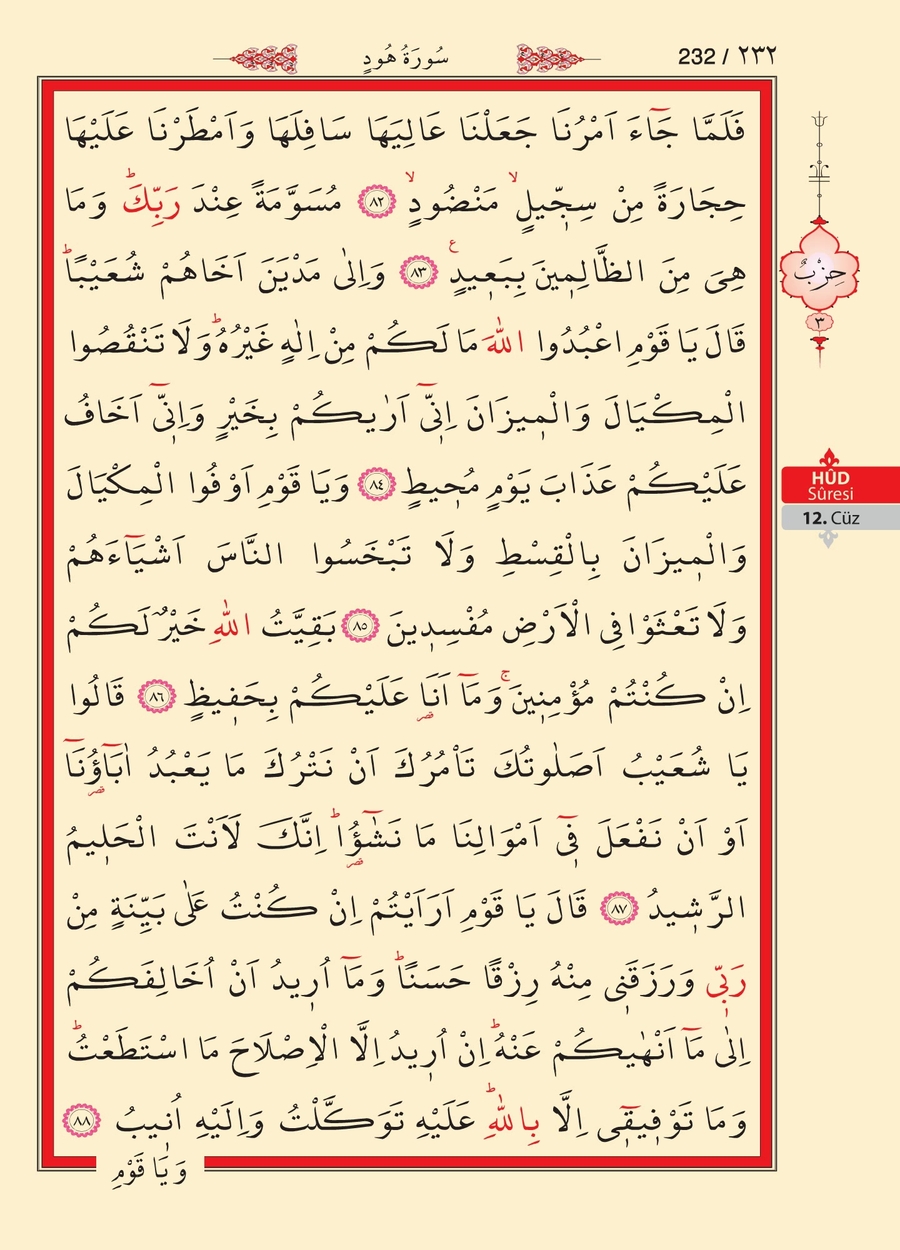 سُورَةُ هُودٍ
232 / ٢٣٢
فَلَمَّا جَٓاءَ اَمْرُنَا جَعَلْنَا عَالِيَهَا سَافِلَهَا وَاَمْطَرْنَا عَلَيْهَا
حِجَارَةً مِنْ سِجّ۪يلٍۙ مَنْضُودٍۙ ﴿٨٢﴾ مُسَوَّمَةً عِنْدَ رَبِّكَۜ وَمَا
هِيَ مِنَ الظَّالِم۪ينَ بِبَع۪يدٍ۟ ﴿٨٣﴾ وَاِلٰى مَدْيَنَ اَخَاهُمْ شُعَيْبًاۜ
قَالَ يَا قَوْمِ اعْبُدُوا اللّٰهَ مَا لَكُمْ مِنْ اِلٰهٍ غَيْرُهُۜ وَلَا تَنْقُصُوا
الْمِكْيَالَ وَالْم۪يزَانَ اِنّ۪ٓي اَرٰيكُمْ بِخَيْرٍ وَاِنّ۪ٓي اَخَافُ
عَلَيْكُمْ عَذَابَ يَوْمٍ مُح۪يطٍ ﴿٨٤﴾ وَيَا قَوْمِ اَوْفُوا الْمِكْيَالَ
وَالْم۪يزَانَ بِالْقِسْطِ وَلَا تَبْخَسُوا النَّاسَ اَشْيَٓاءَهُمْ
وَلَا تَعْثَوْا فِي الْاَرْضِ مُفْسِد۪ينَ ﴿٨٥﴾ بَقِيَّتُ اللّٰهِ خَيْرٌ لَكُمْ
اِنْ كُنْتُمْ مُؤْمِن۪ينَۚ وَمَٓا اَنَا۬ عَلَيْكُمْ بِحَف۪يظٍ ﴿٨٦﴾ قَالُوا
يَا شُعَيْبُ اَصَلٰوتُكَ تَأْمُرُكَ اَنْ نَتْرُكَ مَا يَعْبُدُ اٰبَٓاؤُ۬نَٓا
اَوْ اَنْ نَفْعَلَ ف۪ٓي اَمْوَالِنَا مَا نَشٰٓؤُ۬اۜ اِنَّكَ لَاَنْتَ الْحَل۪يمُ
الرَّش۪يدُ ﴿٨٧﴾ قَالَ يَا قَوْمِ اَرَاَيْتُمْ اِنْ كُنْتُ عَلٰى بَيِّنَةٍ مِنْ
رَبّ۪ي وَرَزَقَن۪ي مِنْهُ رِزْقًا حَسَنًاۜ وَمَٓا اُر۪يدُ اَنْ اُخَالِفَكُمْ
اِلٰى مَٓا اَنْهٰيكُمْ عَنْهُۜ اِنْ اُر۪يدُ اِلَّا الْاِصْلَاحَ مَا اسْتَطَعْتُۜ
وَمَا تَوْف۪يق۪ٓي اِلَّا بِاللّٰهِۜ عَلَيْهِ تَوَكَّلْتُ وَاِلَيْهِ اُن۪يبُ ﴿٨٨﴾
وَيَا قَوْمِ
حِزْبٌ
٣
HÛD
Sûresi
12. Cüz